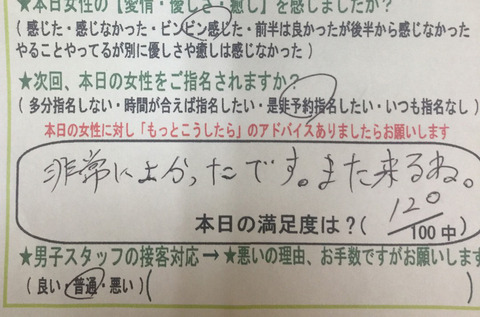 ★本日女性の【愛情・優しさ・癒し】を感じましたか？
（感じた・感じなかった・ビンビン感じた・前半は良かったが後半から感じなかった
やることやってるが別に優しさや癒しは感じなかった）
★次回、本日の女性をご指名されますか？
（多分指名しない・時間が合えば指名したい・是非予約指名したい・いつも指名なし）
本日の女性に対し「もっとこうしたら」のアドバイスありましたらお願いします
非常によかったです。また来るね。
本日の満足度は？（120/100中）
★男子スタッフの接客対応→★悪いの理由、お手数ですがお願いします
（良い・普通・悪い）（